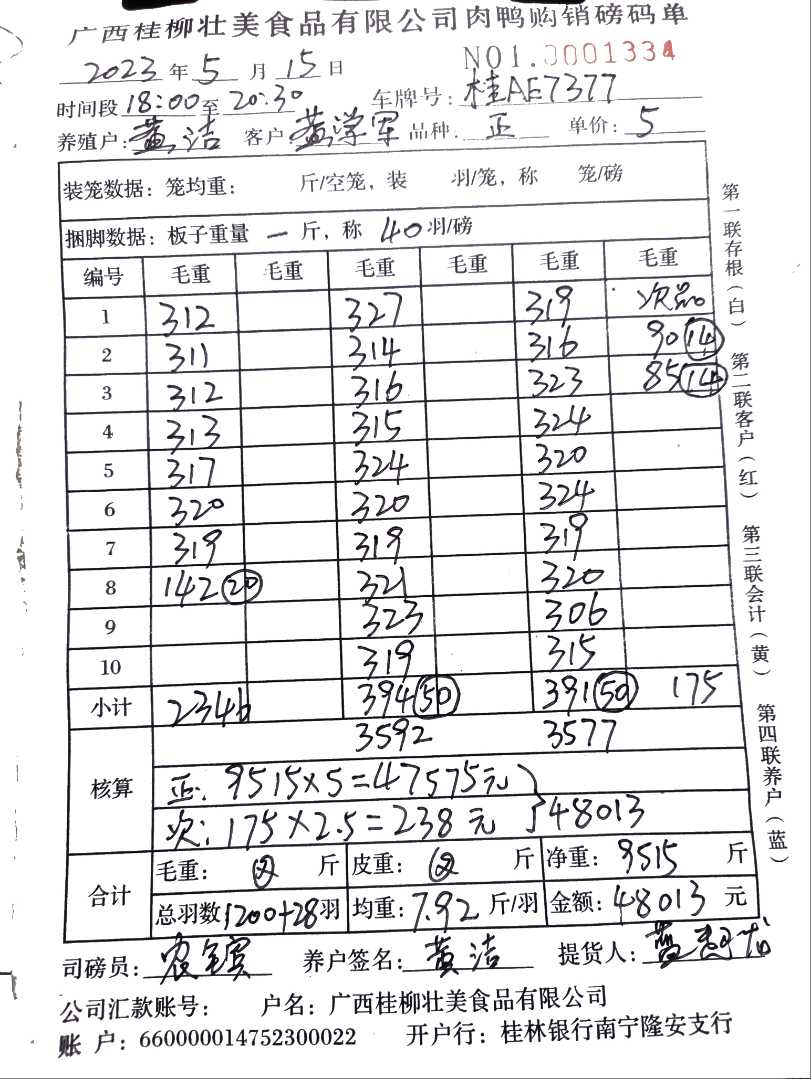 广西桂柳壮美食品有限公司肉鸭购销磅码单
2023年5月15日 NO1.0001334
时间段18:00至20:30 车牌号:桂AE7377
养殖户:黄洁 客户:黄学军 品种:正 单价:5
装笼数据: 笼均重: 斤/空笼, 装 羽/笼, 称 笼/磅
捆脚数据: 板子重量 一 斤, 称 40羽/磅
编号 毛重 毛重 毛重 毛重 毛重 毛重
1 312 327 319 次品
2 311 314 316 90 14
3 312 316 323 85 14
4 313 315 324
5 317 324 320
6 320 320 324
7 319 319 319
8 142 20 321 320
9 323 306
10 319 315
小计 2346 394 50 391 50 175
3592 3577
核算 正: 9515×5=47575元
次: 175×2.5=238元 }48013
合计 毛重: 斤 皮重: 斤 净重: 9515 斤
总羽数1200+28羽 均重: 7.92 斤/羽 金额: 48013 元
司磅员: 养户签名: 黄洁 提货人:
公司汇款账号: 户名: 广西桂柳壮美食品有限公司
账 户: 660000014752300022 开户行: 桂林银行南宁隆安支行
第一联存根(白)
第二联客户(红)
第三联会计(黄)
第四联养户(蓝)